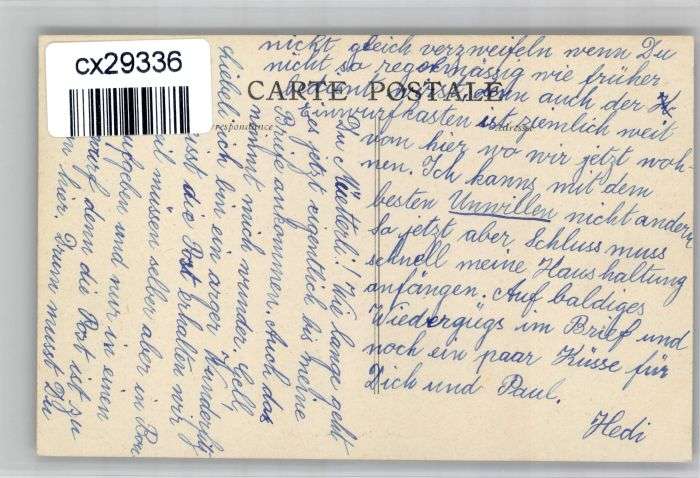 cx29336
CARTE POSTALE
respondance
Adresse
Du Mutterli! Wie lange geht
es jetzt eigentlich bis meine
Briefe ankommen. Auch das
nimmt mich wunder. Gell,
Liebel ich bin ein arger Wunderfitz
die Post erhalten wir
müssen selber aber in Bon
aufgeben und nur in einen
denn die Post ist zu
hier. Drum musst Du
nicht gleich verzweifeln wenn Du
nicht so regelmässig wie früher
denn auch der
Einwurfkasten ist ziemlich weit
von hier wo wir jetzt woh-
nen. Ich kanns mit dem
besten Unwillen nicht ändern
So jetzt aber Schluss muss
schnell meine Haushaltung
anfangen. Auf baldiges
Wiedergügs im Brief und
noch ein paar Küsse für
Dich und Paul.
Hedi